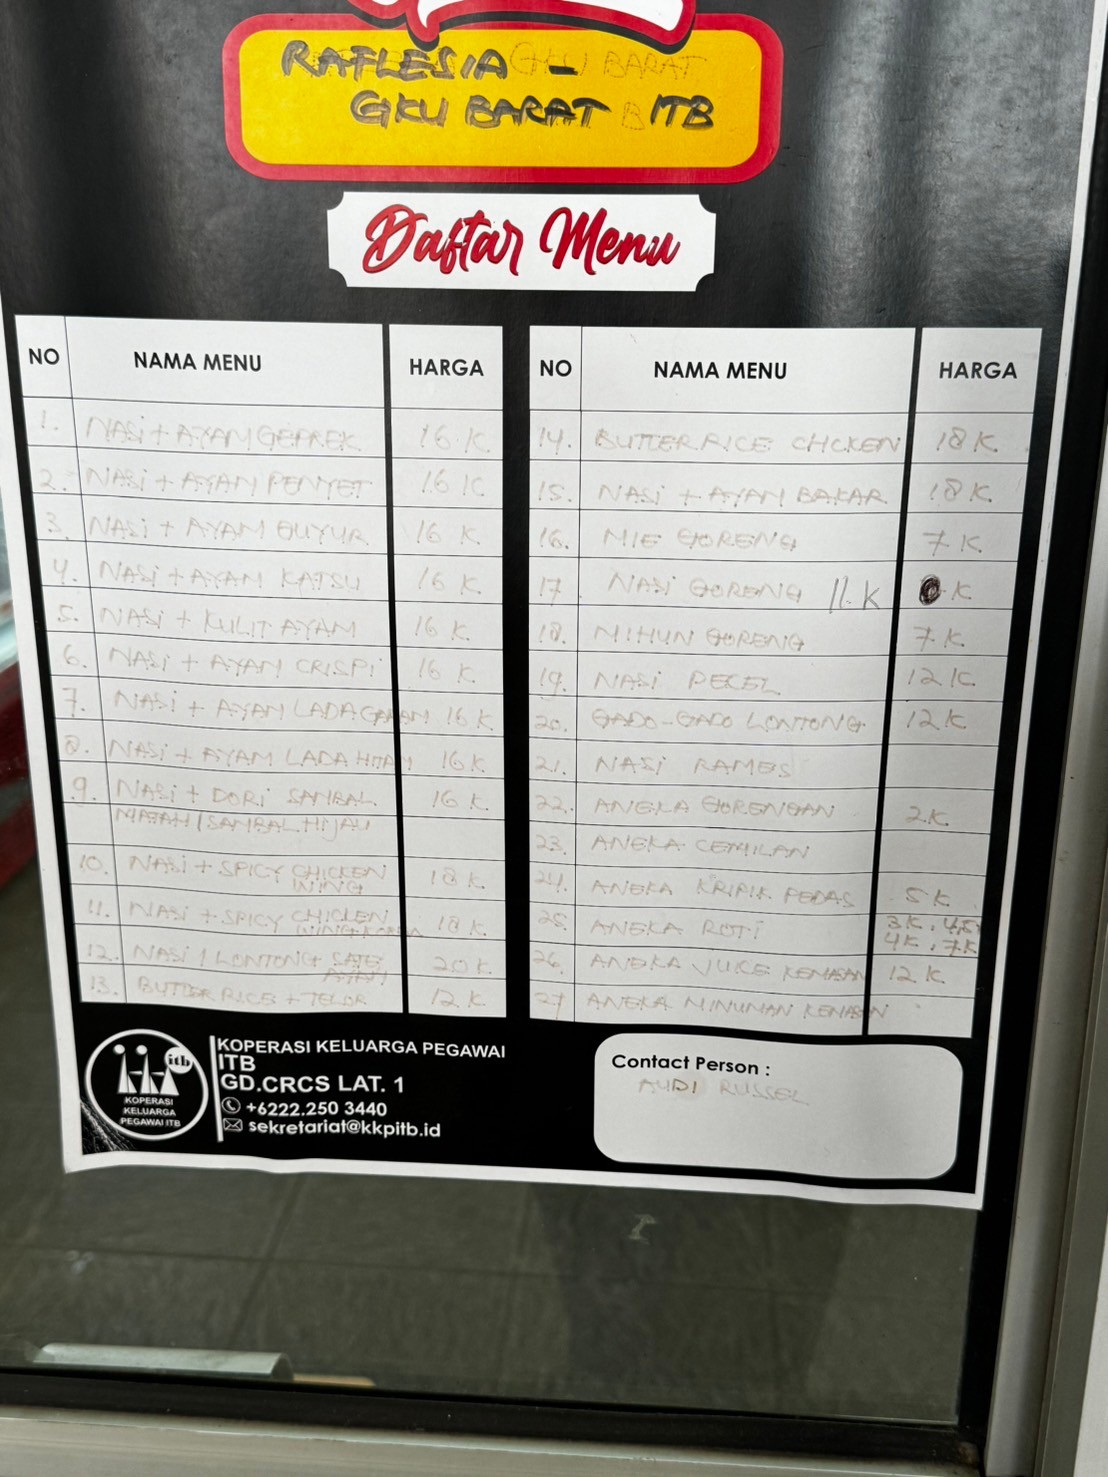 RAFLESIA -
GKU BARAT ITB
Daftar Menu
NO NAMA MENU HARGA
1. NASI + AYAM GEPREK 16 K
2. NASI + AYAM PENYET 16 K
3. NASI + AYAM GUYUR 16 K.
4. NASI + AYAM KATSU 16 K.
5. NASI + KULIT AYAM 16 K.
6. NASI + AYAM CRISPI 16 K.
7. NASI + AYAM LADA GARAM 16 K
8. NASI + AYAM LADA HITAM 16 K
9. NASI + DORI SAMBAL 16 K.
MATAH / SAMBAL HIJAU
10. NASI + SPICY CHICKEN 18 K.
WING
11. NASI + SPICY 18 K.
12. NASI / LONTONG SATE 20 K
AYAM
13. BUTTER RICE + TELOR 12 K.
NO NAMA MENU HARGA
14. BUTTER RICE CHCKEN 18 K.
15. NASI + AYAM BAKAR 18 K.
16. MIE GORENG 7 K.
17 NASI GORENG 11. K K
18. MIHUN GORENG 7 K.
19. NASI PECEL 12 K.
20. GADO-GADO LONTONG 12 K.
21. NASI RAMES
22. ANEKA GORENGAN 2 K.
23. ANEKA CEMILAN
24. ANEKA KRIPIK PEDAS 5 K
25. ANEKA ROTI 3K,
4K, 7K
26. ANEKA JUICE KEMASAN 12 K.
27 ANEKA MINUMAN KEMASAN
itb
KOPERASI
KELUARGA
PEGAWAI ITB
KOPERASI KELUARGA PEGAWAI
ITB
GD.CRCS LAT. 1
+6222.250 3440
sekretariat@kkpitb.id
Contact Person :
AUDI RUSSEL